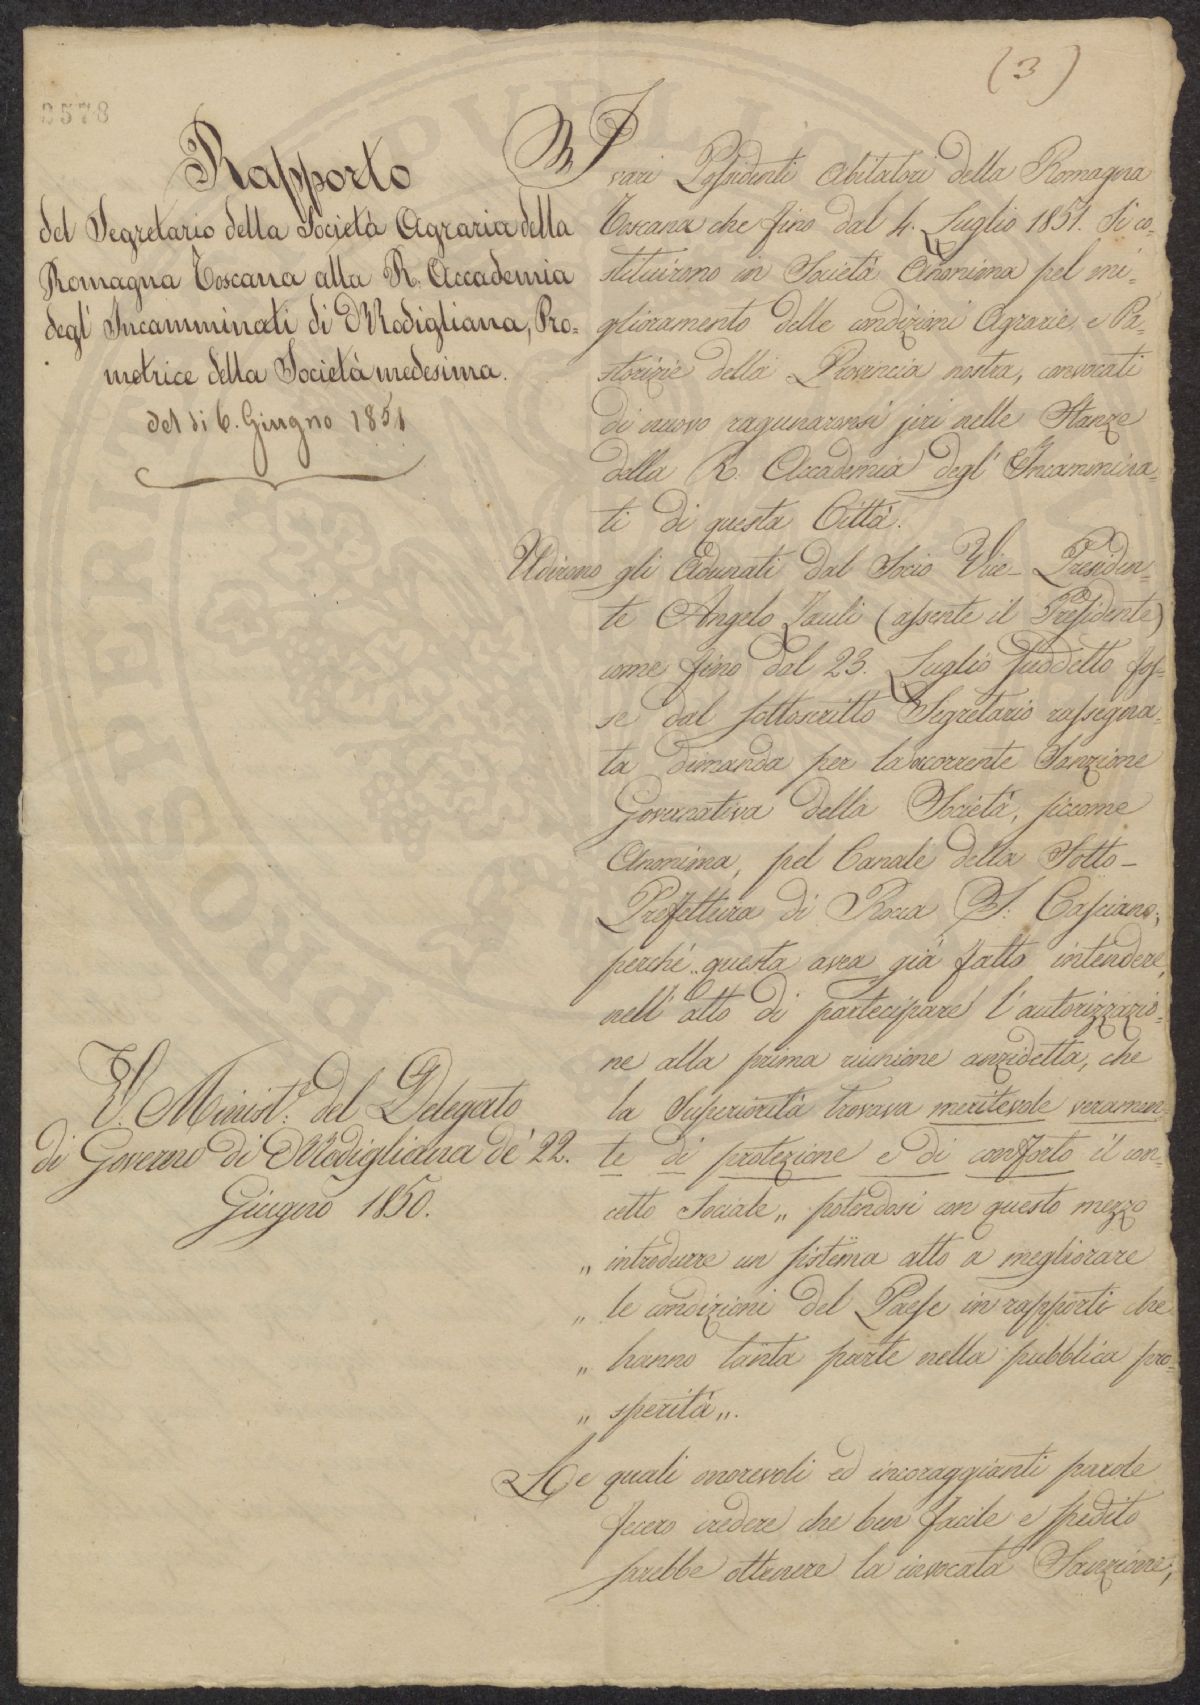 (3)
3578
Rapporto
del Segretario della Società Agraria della
Romagna Toscana alla R. Accademia
degl' Incamminati di Modigliana, Pro-
motrice della Società medesima.
del dì 6. Giugno 1851
V. Minist.e del Delegato
di Governo di Modigliana de' 22.
Giugno 1850.
I
varj Possidenti abitatori della Romagna
Toscana che fino dal 4. Luglio 1851. si co-
stituirono in Società Anonima pel mi-
glioramento delle condizioni Agrarie e Pa-
storizie della Provincia nostra, convocati
di nuovo ragunaronsi jeri nelle Stanze
della R. Accademia degl' Incammina-
ti di questa Città.
Udirono gli Adunati dal Socio Vice-Presiden-
te Angelo Jauli (assente il Presidente)
come fino dal 23. Luglio suddetto fos-
se dal sottoscritto Segretario rassegna-
ta dimanda per la occorrente Sanzione
Governativa della Società, siccome
Anonima, pel Canale della Sotto-
Prefettura di Rocca S: Casciano;
perchè questa avea già fatto intendere,
nell' atto di partecipare l'autorizzazio-
ne alla prima riunione anzidetta, che
la Superiorità trovava meritevole veramen-
te di protezione e di conforto il con-
cetto Sociale „ potendosi con questo mezzo
„ introdurre un sistema atto a megliorare
„ le condizioni del Paese in rapporti che
„ hanno tanta parte nella pubblica pro-
„ sperità „.
Le quali onorevoli ed incoraggianti parole
fecero credere che ben facile e spedito
sarebbe ottenere la invocata Sanzione,